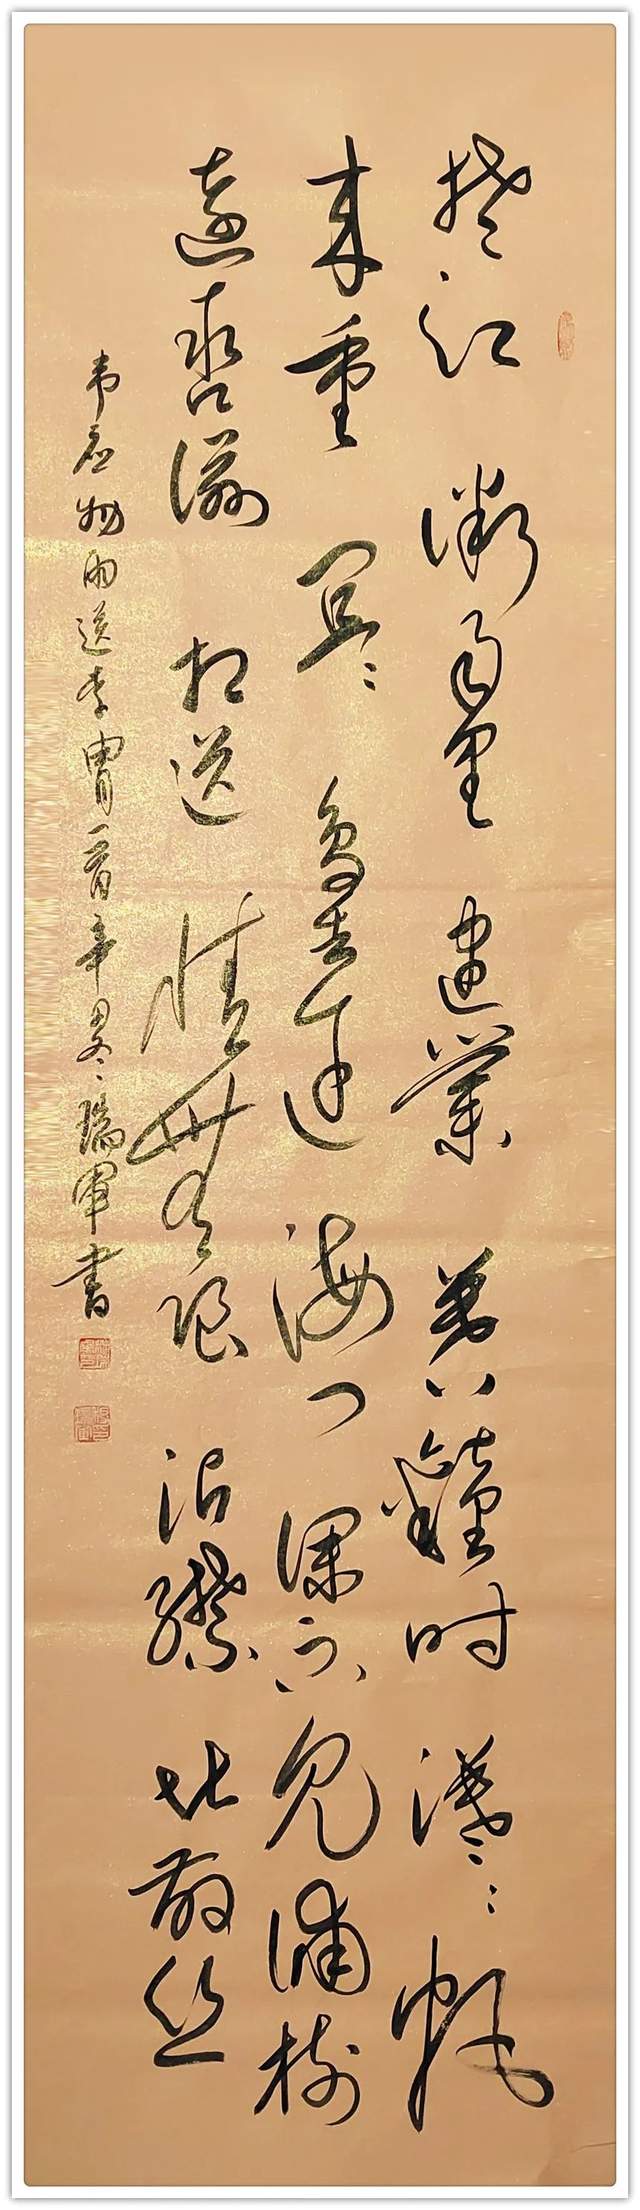 楚江微雨里建業暮鐘时漠〻帆
来重冥〻鳥去遲海门深不见浦树
遠含滋相送情無限沾襟比散丝
韦应物雨送李胄一首辛丑冬瑞军书